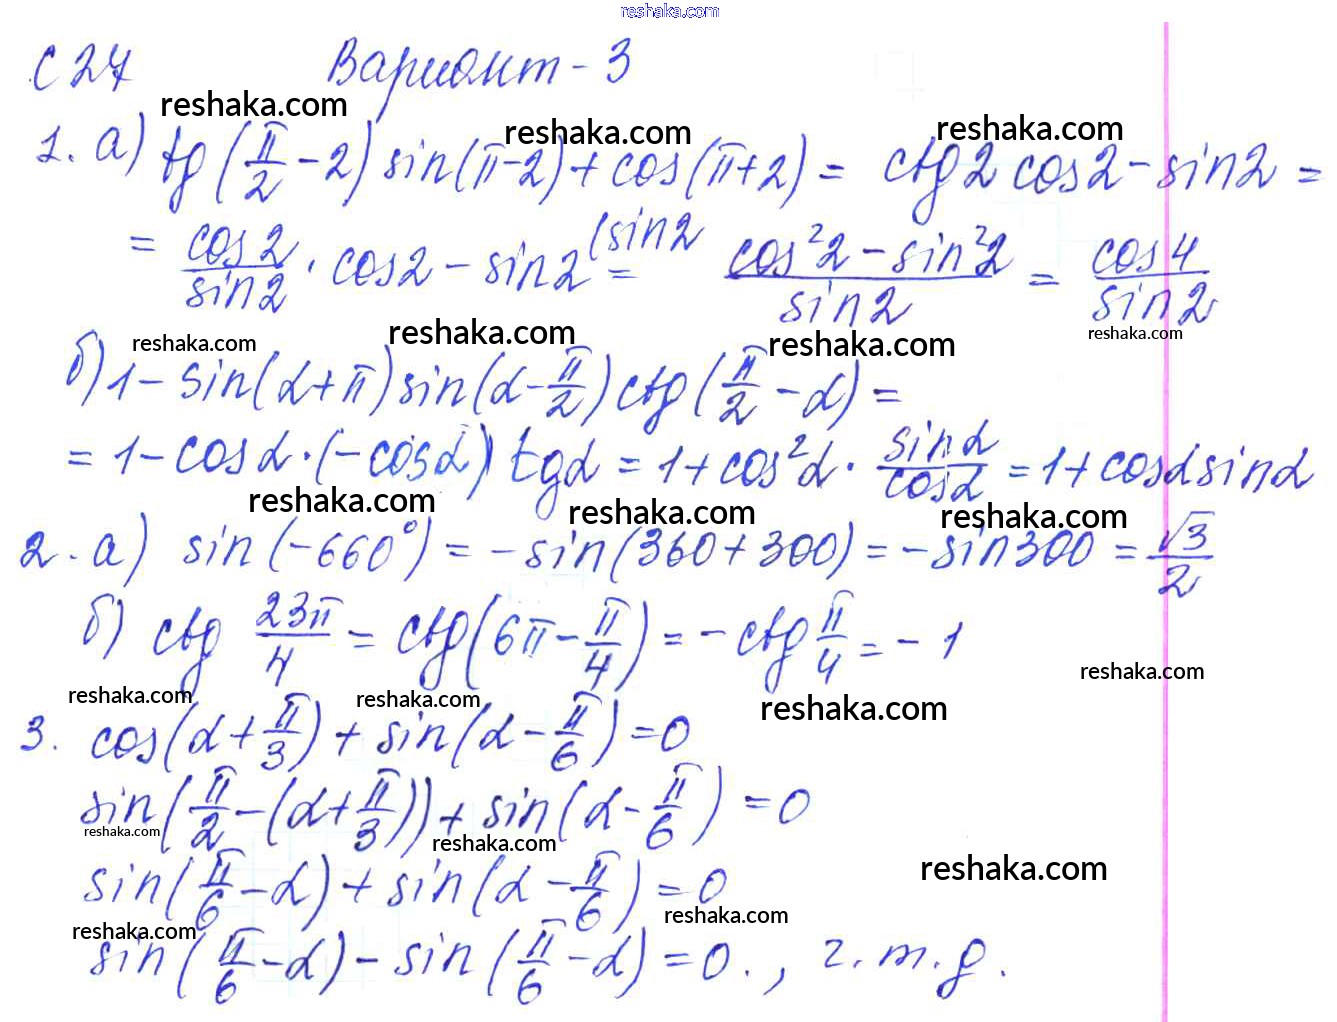 reshaka.com
С 27 Вариант - 3
reshaka.com reshaka.com reshaka.com
1. а) tg(π/2 - 2) sin(π-2) + cos(π+2) = ctg2 cos2 - sin2 =
= cos2/sin2 · cos2 - sin2 (sin2 = cos²2 - sin²2/sin2 = cos4/sin2
reshaka.com reshaka.com reshaka.com reshaka.com
б) 1 - sin(α+π) sin(α - π/2) ctg(π/2 - α) =
= 1 - cosα · (-cosα) tgα = 1 + cos²α · sinα/cosα = 1 + cosα sinα
reshaka.com reshaka.com reshaka.com
2. а) sin(-660°) = -sin(360 + 300) = -sin300 = √3/2
б) ctg 23π/4 = ctg(6π - π/4) = -ctg π/4 = -1
reshaka.com reshaka.com reshaka.com reshaka.com
3. cos(α + π/3) + sin(α - π/6) = 0
sin(π/2 - (α + π/3)) + sin(α - π/6) = 0
reshaka.com reshaka.com reshaka.com
sin(π/6 - α) + sin(α - π/6) = 0
reshaka.com reshaka.com
sin(π/6 - α) - sin(π/6 - α) = 0., г.т.д.